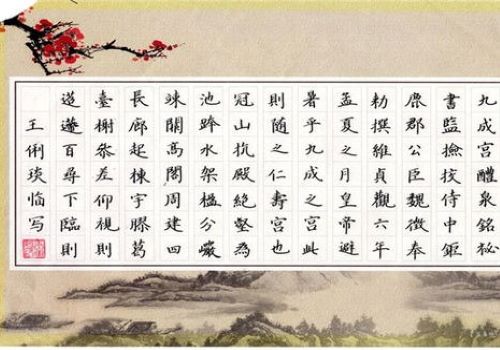 九成宮醴泉銘秘
書監撿挍侍中鉅
鹿郡公臣魏徵奉
勅撰維貞觀六年
孟夏之月皇帝避
暑乎九成之宮此
則隨之仁壽宮也
冠山抗殿絕壑為
池跨水架楹分巖
竦闕高閣周建四
長廊起棟宇膠葛
臺榭參差仰視則
迢遰百尋下臨則
王俐琰临写